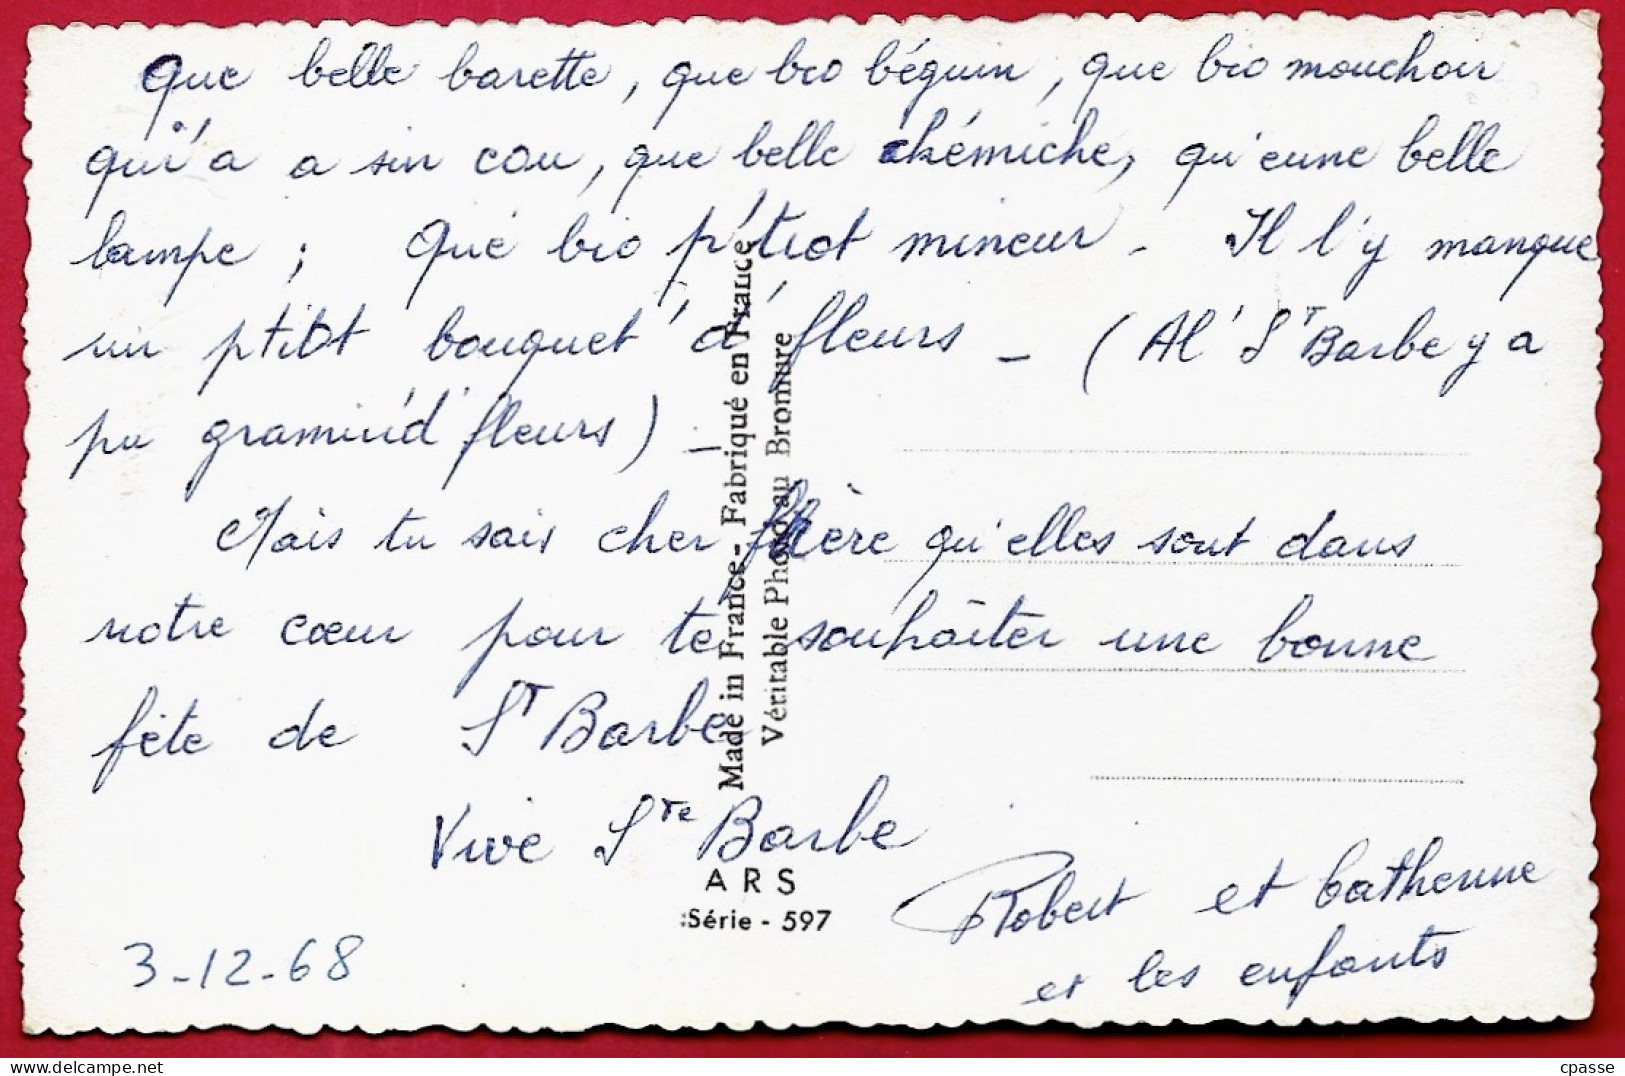 Que belle barette, que bio béguin, que bio mouchoir
qui'a a sin cou, que belle chémiche, qu'eune belle
lampe ; Que bio p'tiot mineur - Il l'y manque
un ptiot bouquet d'fleurs - (Al' St Barbe y a
pu gramin'd'fleurs) -
Mais tu sais cher frère qu'elles sont dans
notre cœur pour te souhaiter une bonne
fête de St Barbe
Vive Ste Barbe
Robert et Catherine
et les enfants
3-12-68
Made in France - Fabriqué en France
Véritable Photo au Bromure
ARS
Série - 597
delcampe.net
cpasse